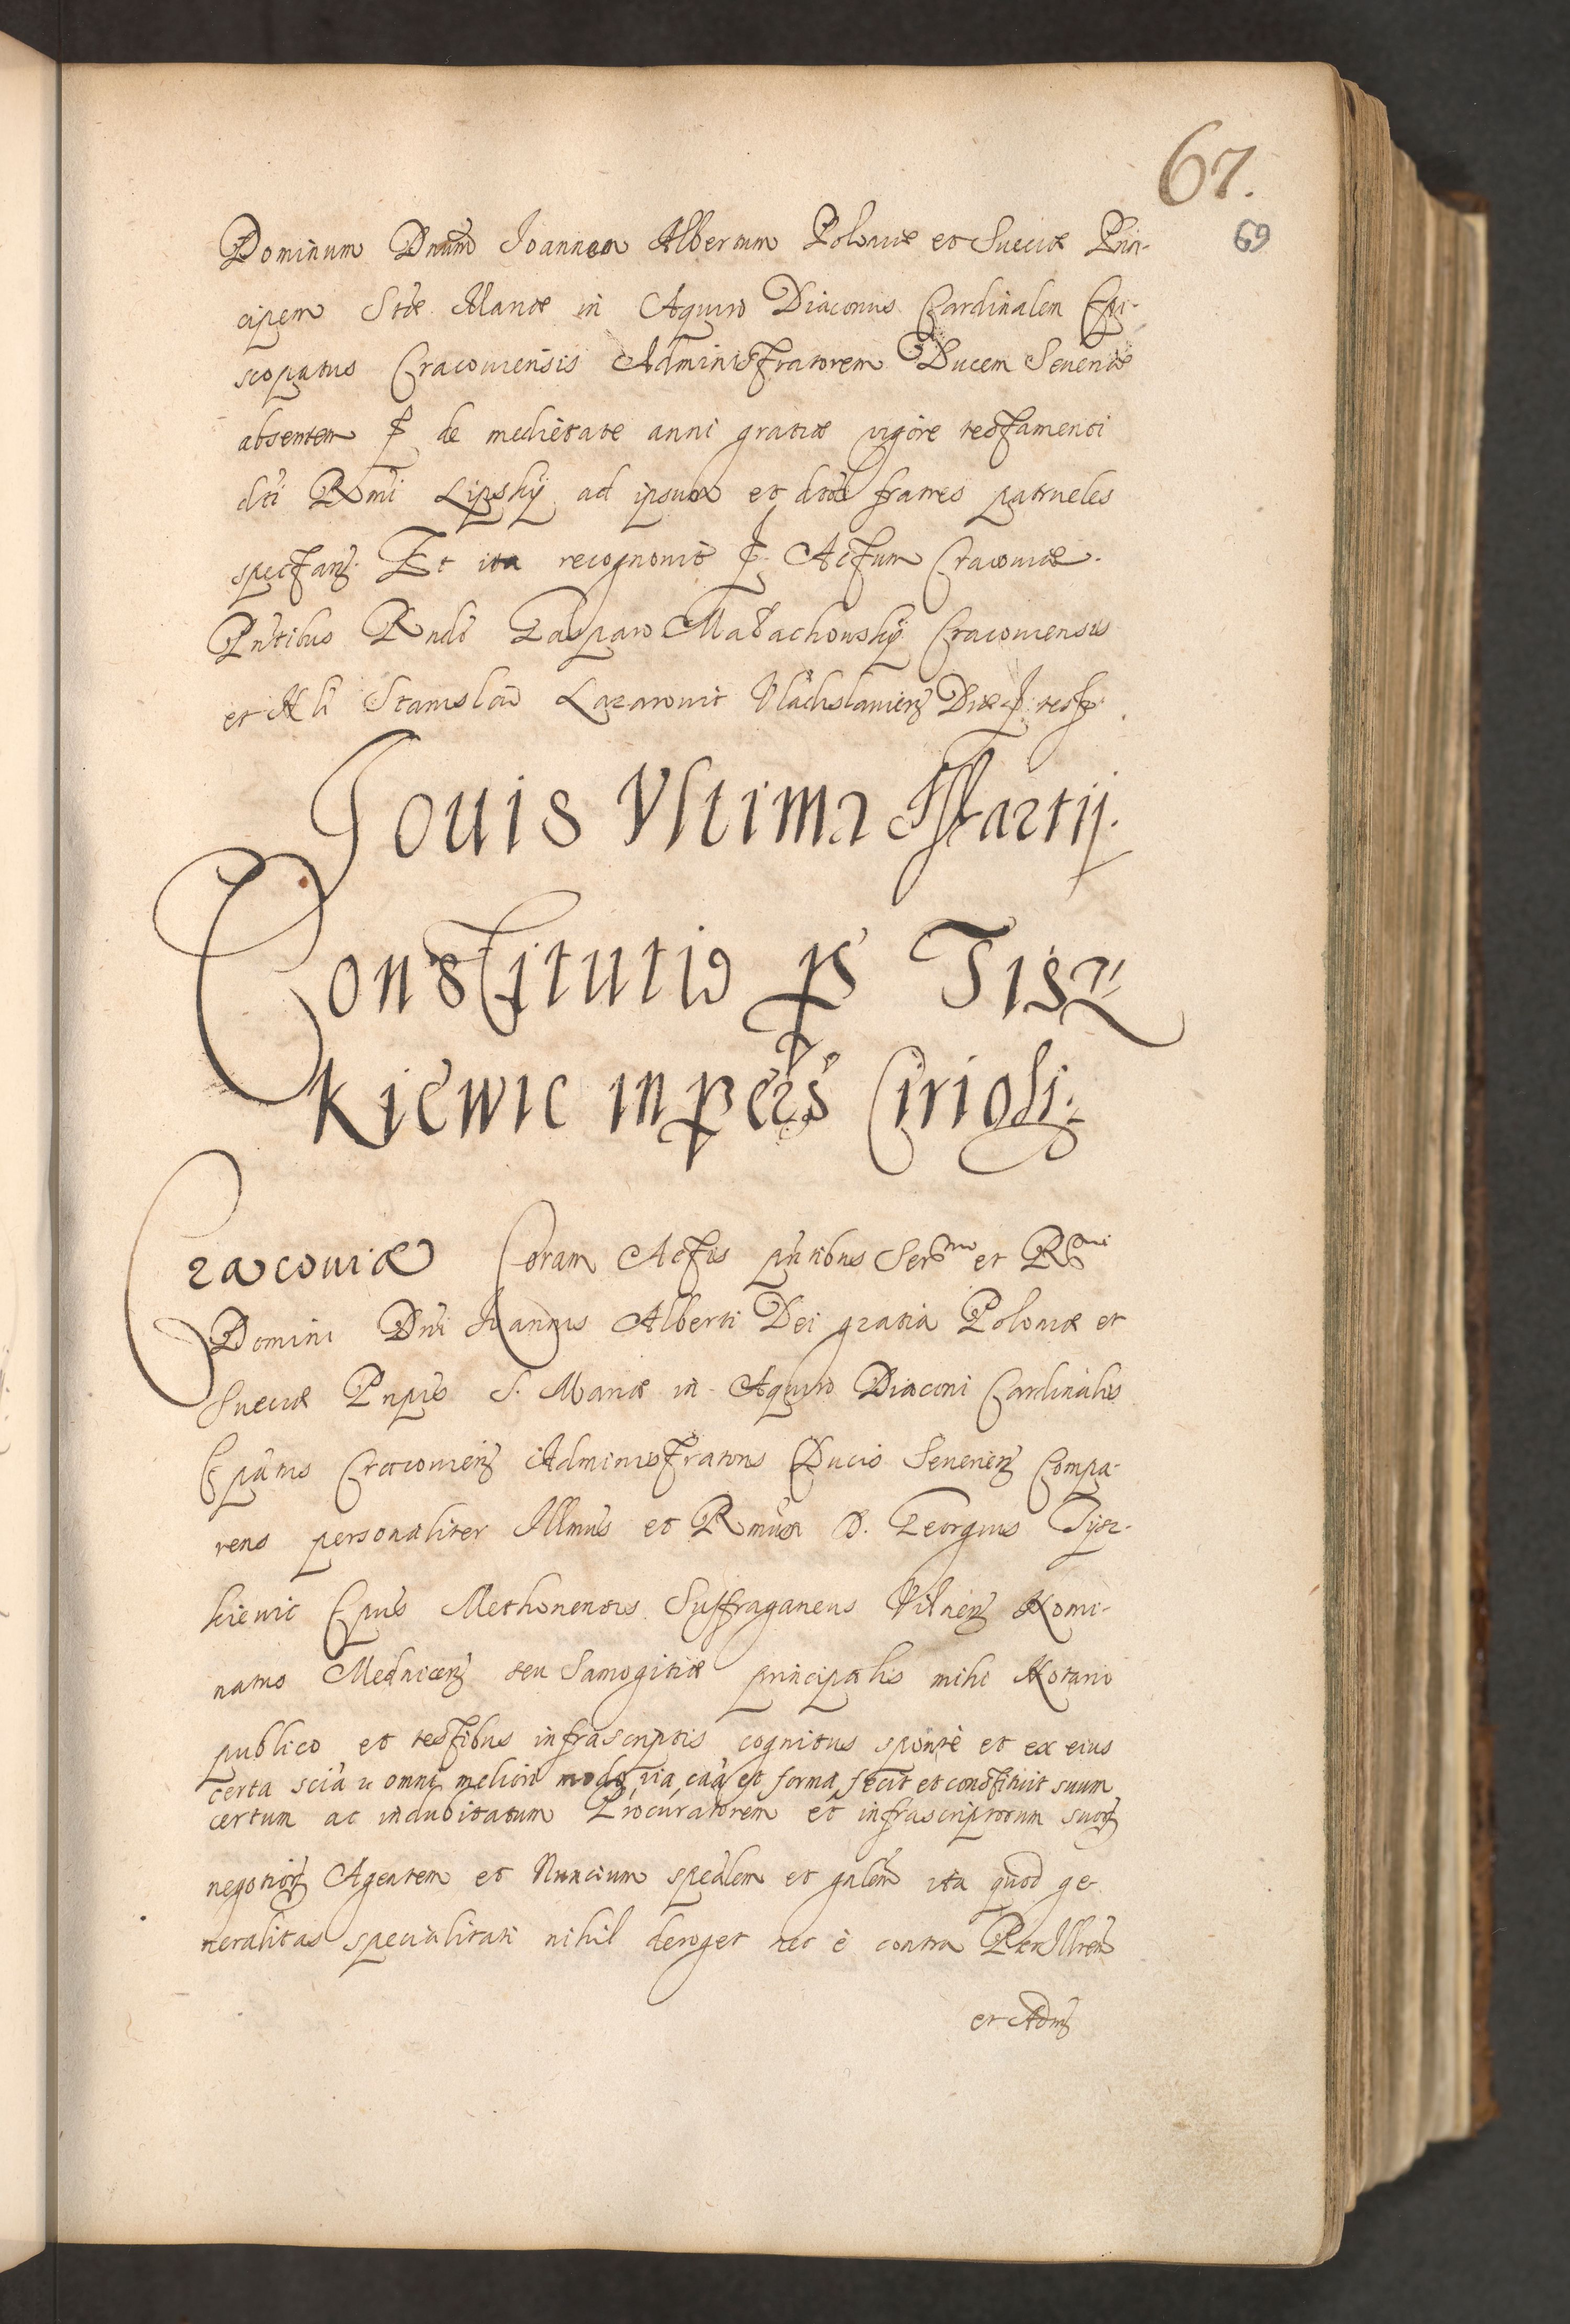 67.
69
Dominum Dnum Joannem Albertum Poloniæ et Sueciæ Prin-
cipem Stæ Mariæ in Aquiro Diaconus Cardinalem Epi-
scopatus Cracouiensis Administratorem Ducem Seueriæ
absentem de medietate anni gratiæ vigore testamenti
dti Rmi Lipskÿ ad ipsum et dtos fratres patrueles
spectan. Et ita recognouit Actum Cracouiæ.
Pntibus Rndo Gasparo Małachowskÿ Cracouiensis
et Stanislao Lazarowit Vladislauien Diæ test
Jouis Vltima Martij.
Constitutio ps Tisz
Kiewic in pers Cirioli.
Cracouiæ Coram Actis pntibus Sermi et Rmi
Domini Dni Joannis Alberti Dei gratia Poloniæ et
Sueciæ Pnpis S. Mariæ in Aquiro Diaconi Cardinalis
Epatus Cracouien Administratoris Ducis Seuerien Compa-
rens personaliter Illmus et Rmus D. Georgius Tÿsz-
kiewic Epus Methonensis Suffraganeus Vilnen Nomi-
natus Mednicen seu Samogitiæ principalis mihi Notario
publico et testibus infrascriptis cognitus spontè et ex eius
certa scia ac omni meliori modo via, caa et forma fecit et constituit suum
certum ac indubitatum Procuratorem et infrascriptorum suor
negotior Agentem et Nuncium spealem et gnlem ita quod ge-
neralitas specialitati nihil deroget nec è contra PerIllrem
et Adm